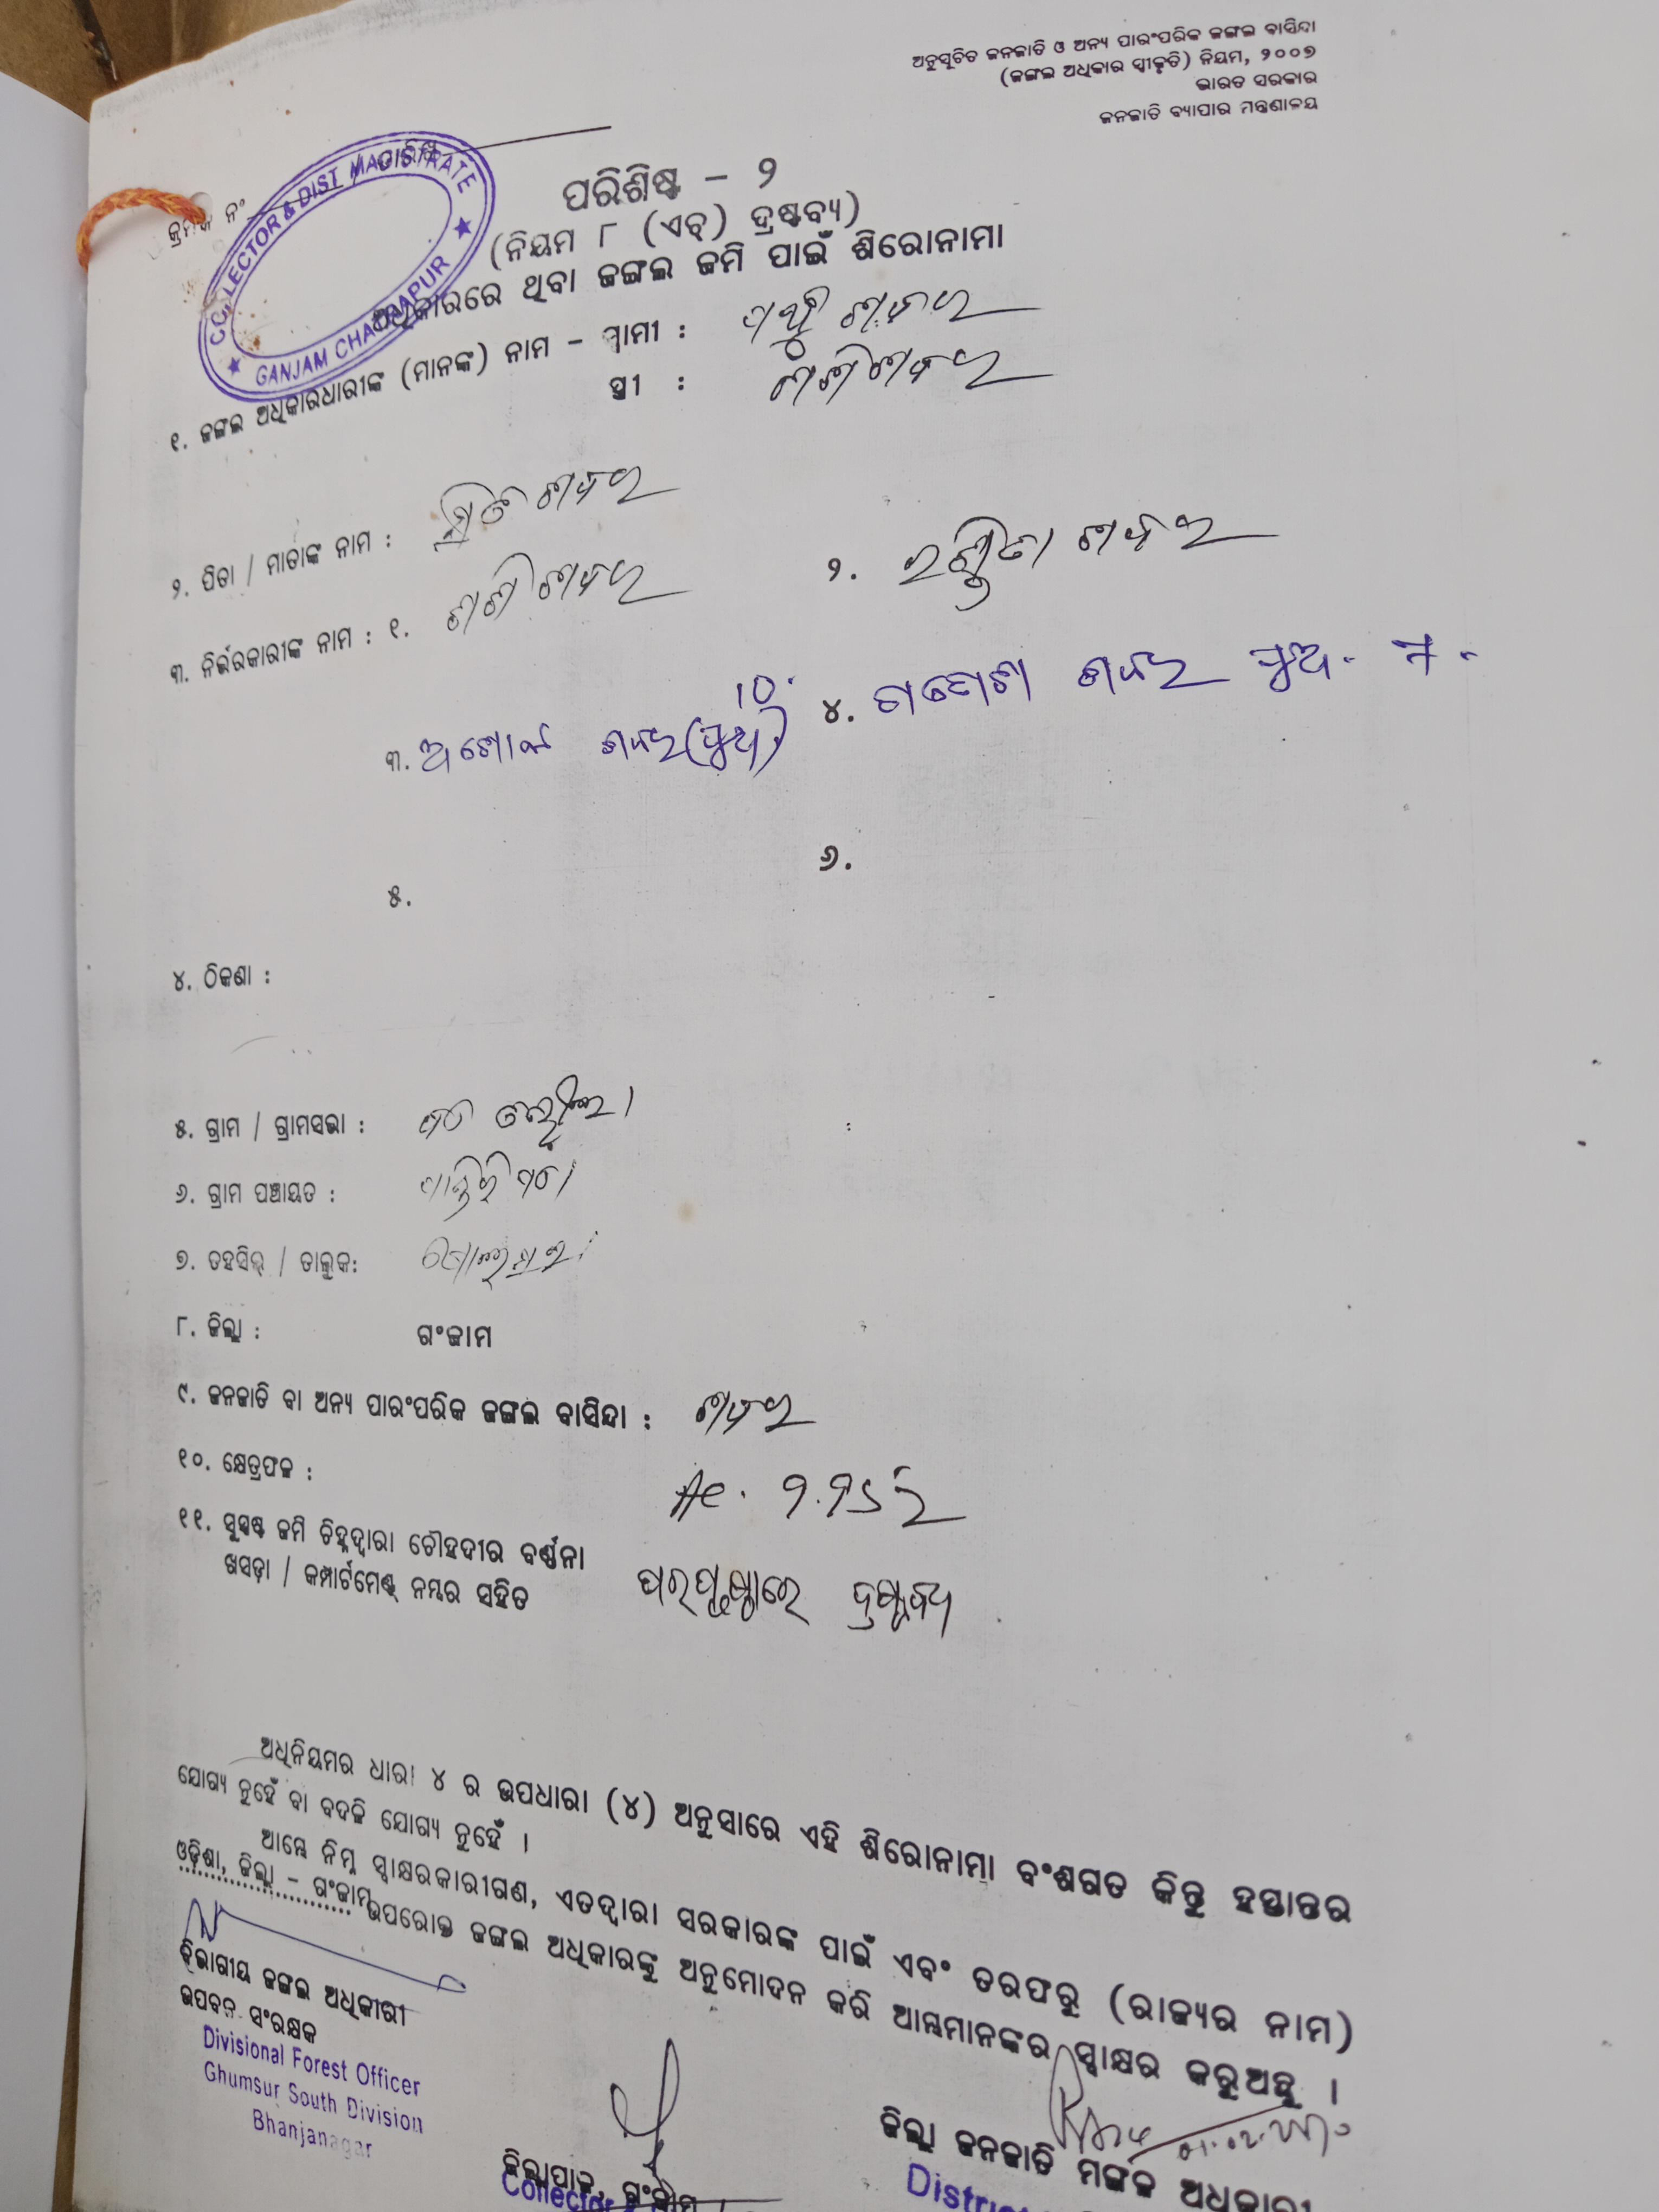 ଅନୁସୂଚିତ ଜନଜାତି ଓ ଅନ୍ୟ ପାରଂପରିକ ଜଙ୍ଗଲ ବାସିନ୍ଦା
(ଜଙ୍ଗଲ ଅଧିକାର ସ୍ୱୀକୃତି) ନିୟମ, ୨୦୦୭
ଭାରତ ସରକାର
ଜନଜାତି ବ୍ୟାପାର ମନ୍ତ୍ରଣାଳୟ
କ୍ରମିକ ନଂ
COLLECTOR & DIST MAGISTRATE
GANJAM CHATRAPUR
ପରିଶିଷ୍ଟ – ୨
(ନିୟମ ୮ (ଏଚ୍) ଦ୍ରଷ୍ଟବ୍ୟ)
ଅଧିକାରରେ ଥିବା ଜଙ୍ଗଲ ଜମି ପାଇଁ ଶିରୋନାମା
୧. ଜଙ୍ଗଲ ଅଧିକାରଧାରୀଙ୍କ (ମାନଙ୍କ) ନାମ – ସ୍ୱାମୀ : ଶବର
ସ୍ତ୍ରୀ : ଶବର
୨. ପିତା / ମାତାଙ୍କ ନାମ : ଶବର
୩. ନିର୍ଭରକାରୀଙ୍କ ନାମ : ୧. ଶବର ୨. ଶବର
୩. ଅଶୋକ ଶବର (ପୁଅ) 10. ୪. ଗଣେଶ ଶବର ପୁଅ
୫. ୬.
୪. ଠିକଣା :
୫. ଗ୍ରାମ / ଗ୍ରାମସଭା :
୬. ଗ୍ରାମ ପଞ୍ଚାୟତ :
୭. ତହସିଲ୍ / ତାଲୁକ:
୮. ଜିଲ୍ଲା : ଗଂଜାମ
୯. ଜନଜାତି ବା ଅନ୍ୟ ପାରଂପରିକ ଜଙ୍ଗଲ ବାସିନ୍ଦା : ଶବର
୧୦. କ୍ଷେତ୍ରଫଳ : Ac.
୧୧. ସୁସ୍ପଷ୍ଟ ଜମି ଚିହ୍ନଦ୍ୱାରା ଚୌହଦୀର ବର୍ଣ୍ଣନା
ଖସଡ଼ା / କମ୍ପାର୍ଟମେଣ୍ଟ୍ ନମ୍ବର ସହିତ ପରପୃଷ୍ଠାରେ ଦ୍ରଷ୍ଟବ୍ୟ
ଅଧିନିୟମର ଧାରା ୪ ର ଉପଧାରା (୪) ଅନୁସାରେ ଏହି ଶିରୋନାମା ବଂଶଗତ କିନ୍ତୁ ହସ୍ତାନ୍ତର
ଯୋଗ୍ୟ ନୁହେଁ ବା ବଦଳି ଯୋଗ୍ୟ ନୁହେଁ ।
ଆମ୍ଭେ ନିମ୍ନ ସ୍ୱାକ୍ଷରକାରୀଗଣ, ଏତଦ୍ୱାରା ସରକାରଙ୍କ ପାଇଁ ଏବଂ ତରଫରୁ (ରାଜ୍ୟର ନାମ)
ଓଡ଼ିଶା, ଜିଲ୍ଲା – ଗଂଜାମ ଉପରୋକ୍ତ ଜଙ୍ଗଲ ଅଧିକାରଙ୍କୁ ଅନୁମୋଦନ କରି ଆମ୍ଭମାନଙ୍କର ସ୍ୱାକ୍ଷର କରୁଅଛୁ ।
ବିଭାଗୀୟ ଜଙ୍ଗଲ ଅଧିକାରୀ
ଉପବନ ସଂରକ୍ଷକ
Divisional Forest Officer
Ghumsur South Division
Bhanjanagar
ଜିଲ୍ଲାପାଳ, ଗଂଜାମ
Collector
ଜିଲ୍ଲା ଜନଜାତି ମଙ୍ଗଳ ଅଧିକାରୀ